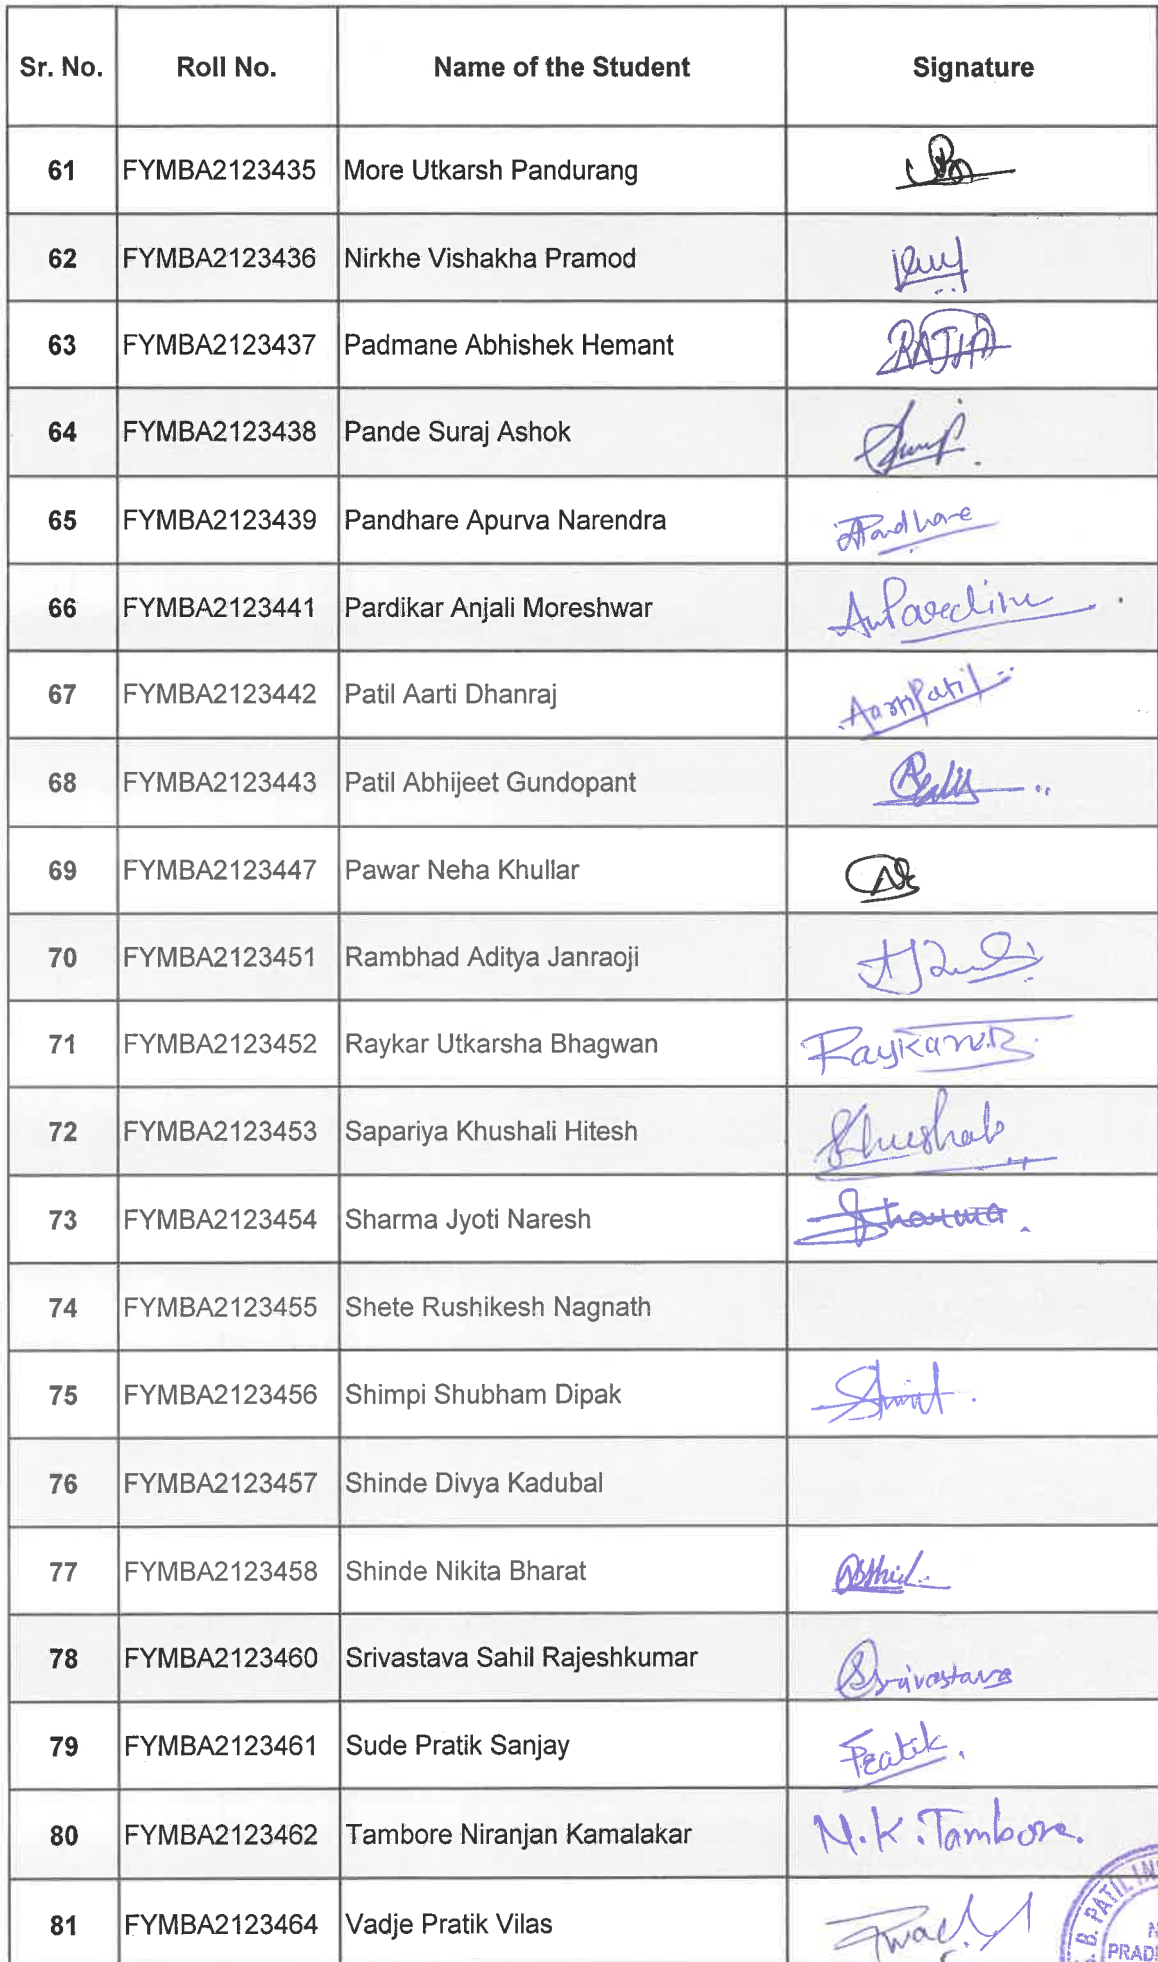 Sr. No. Roll No. Name of the Student Signature
61 FYMBA2123435 More Utkarsh Pandurang
62 FYMBA2123436 Nirkhe Vishakha Pramod
63 FYMBA2123437 Padmane Abhishek Hemant
64 FYMBA2123438 Pande Suraj Ashok
65 FYMBA2123439 Pandhare Apurva Narendra APandhare
66 FYMBA2123441 Pardikar Anjali Moreshwar
67 FYMBA2123442 Patil Aarti Dhanraj AartiPatil
68 FYMBA2123443 Patil Abhijeet Gundopant
69 FYMBA2123447 Pawar Neha Khullar
70 FYMBA2123451 Rambhad Aditya Janraoji
71 FYMBA2123452 Raykar Utkarsha Bhagwan
72 FYMBA2123453 Sapariya Khushali Hitesh
73 FYMBA2123454 Sharma Jyoti Naresh Sharma
74 FYMBA2123455 Shete Rushikesh Nagnath
75 FYMBA2123456 Shimpi Shubham Dipak
76 FYMBA2123457 Shinde Divya Kadubal
77 FYMBA2123458 Shinde Nikita Bharat
78 FYMBA2123460 Srivastava Sahil Rajeshkumar Srivastava
79 FYMBA2123461 Sude Pratik Sanjay Pratik.
80 FYMBA2123462 Tambore Niranjan Kamalakar N.K.Tambore.
81 FYMBA2123464 Vadje Pratik Vilas
B. PATIL IN
PRAD